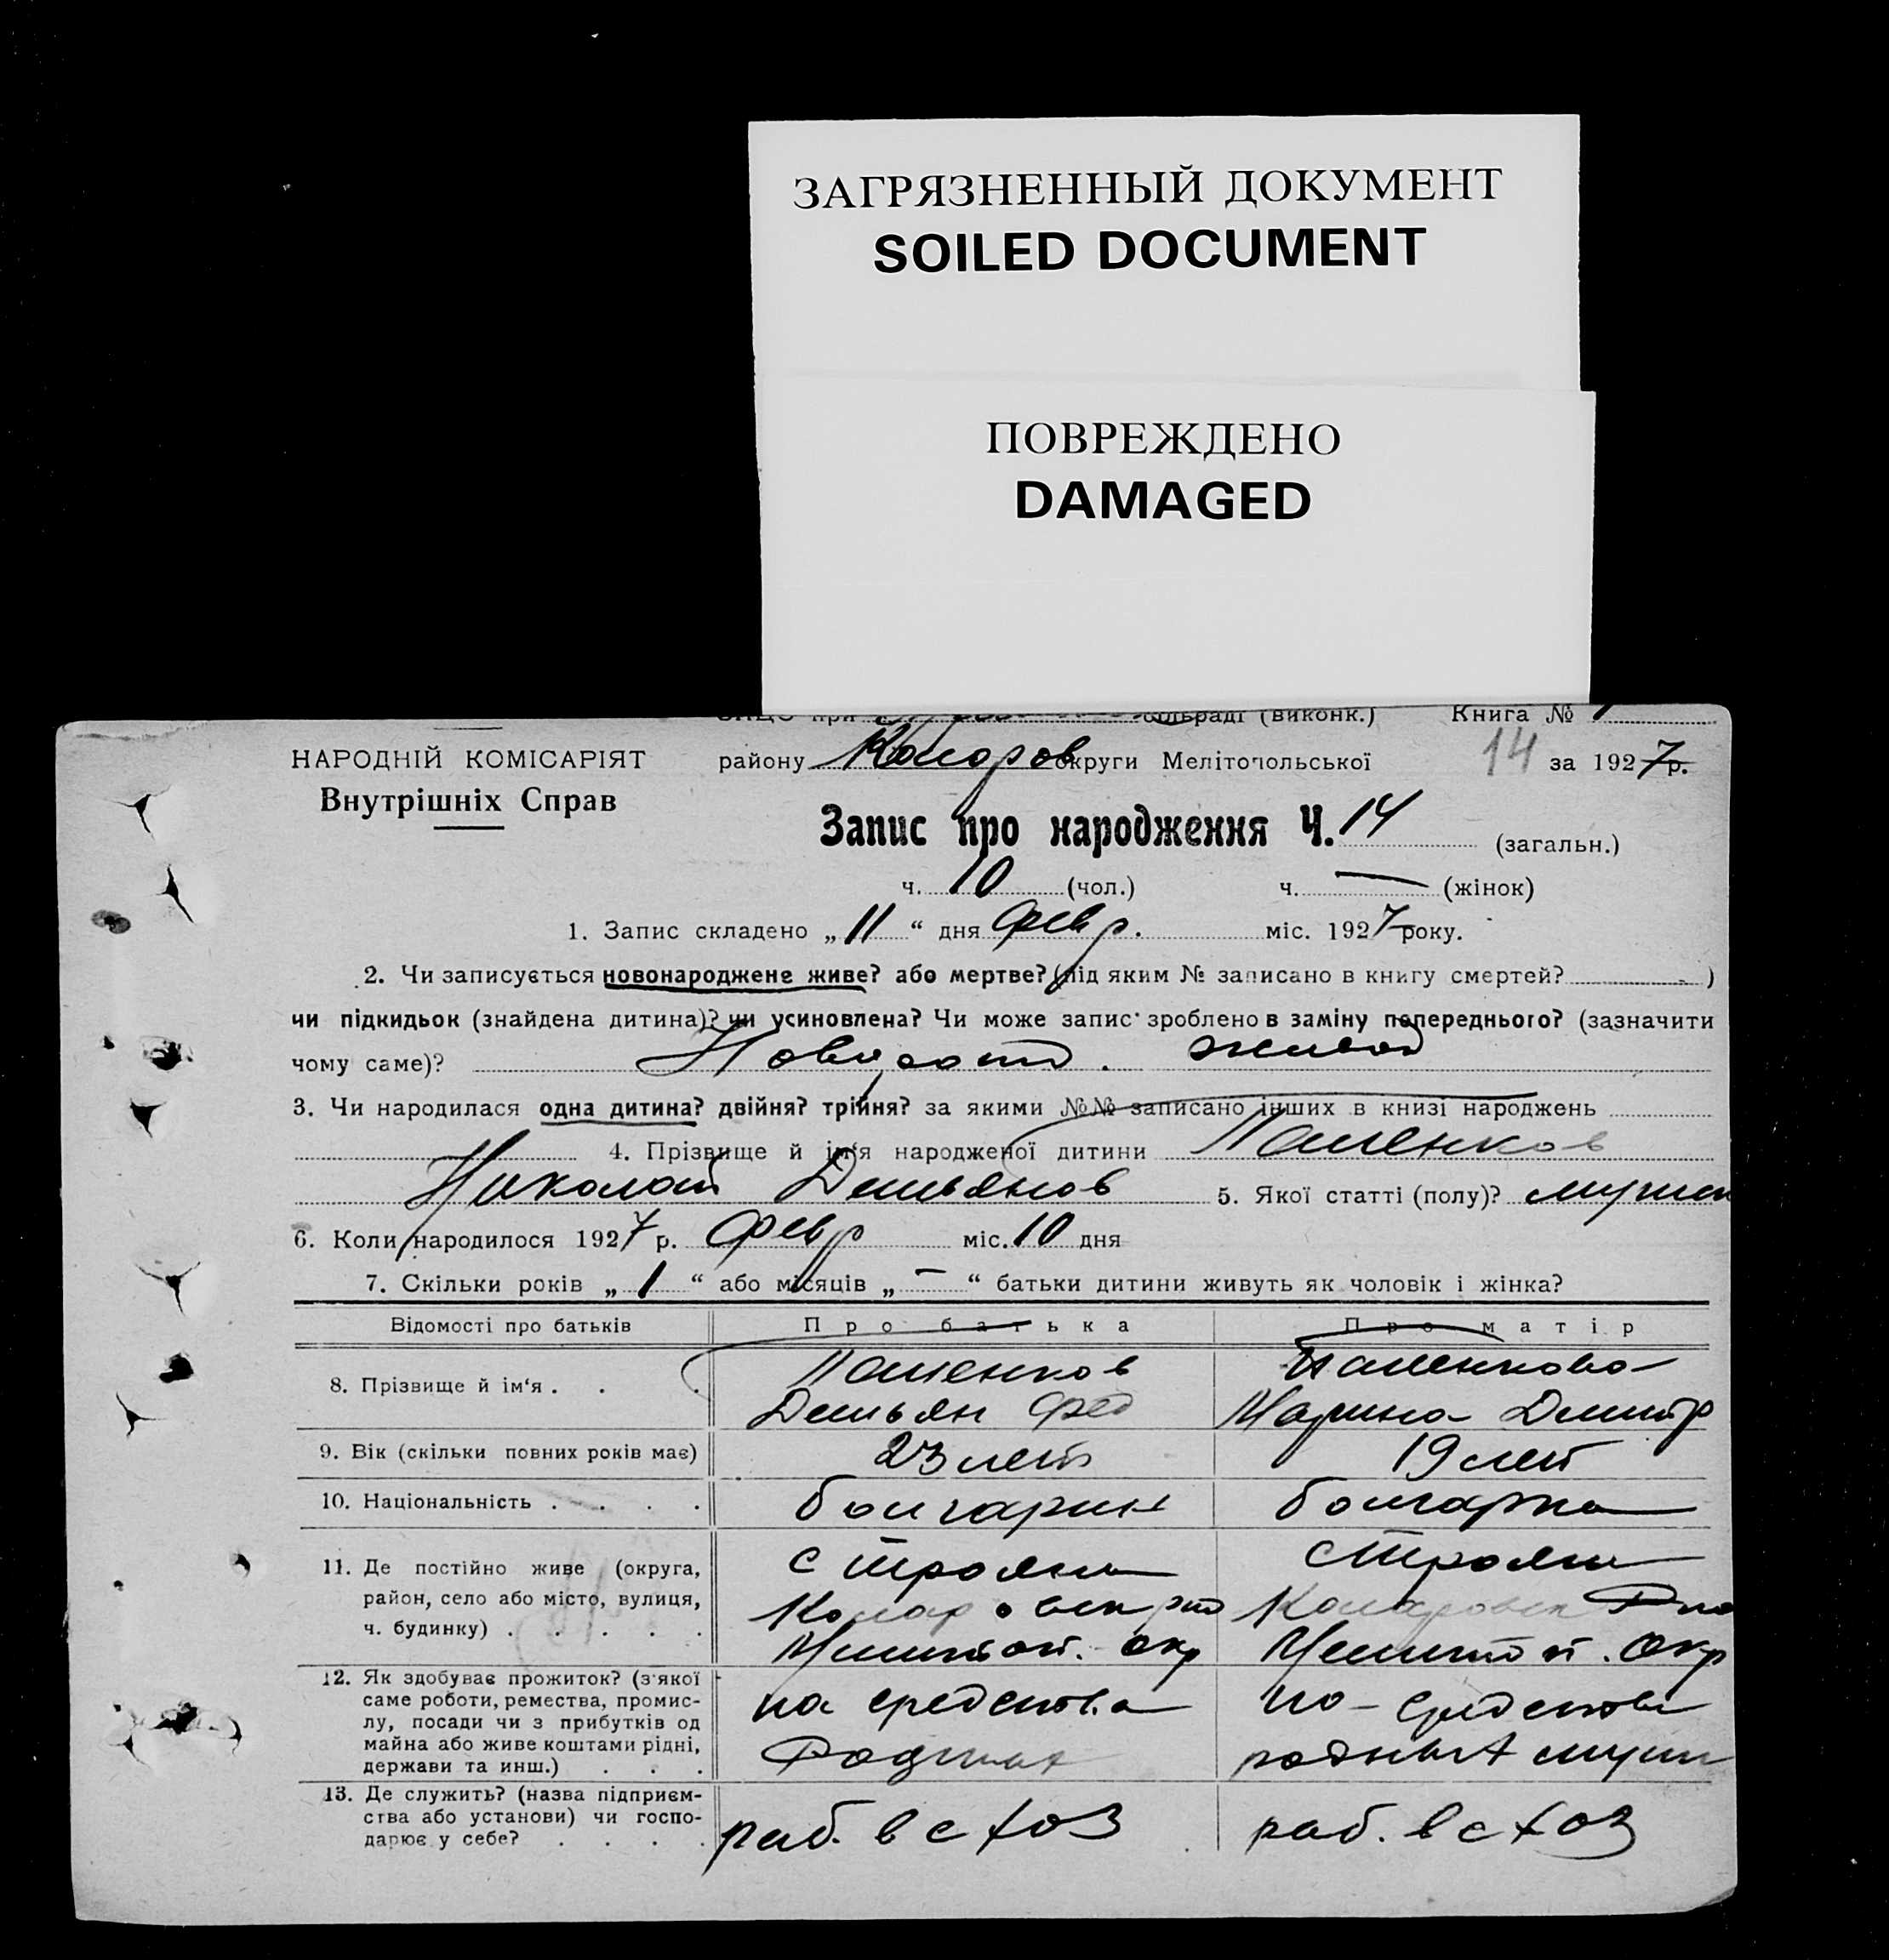 ЗАГРЯЗНЕННЫЙ ДОКУМЕНТ
SOILED DOCUMENT
ПОВРЕЖДЕНО
DAMAGED
при сільраді (виконк.) Книга № 1
НАРОДНІЙ КОМІСАРІЯТ
Внутрішніх Справ
району Коларов округи Мелітопольської 14 за 1927 р.
Запис про народження Ч. 14 (загальн.)
ч. 10 (чол.) ч. — (жінок)
1. Запис складено „11“ дня Февр. міс. 1927 року.
2. Чи записується новонароджене живе? або мертве? (під яким № записано в книгу смертей? )
чи підкидьок (знайдена дитина)? чи усиновлена? Чи може запис зроблено в заміну попереднього? (зазначити
чому саме)? живой
3. Чи народилася одна дитина? двійня? трійня? за якими №№ записано інших в книзі народжень
4. Прізвище й ім‘я народженої дитини Пашенков
Николай Демьянов 5. Якої статті (полу)? мужск
6. Коли народилося 1927 р. Февр міс. 10 дня
7. Скільки років „1“ або місяців „—“ батьки дитини живуть як чоловік і жінка?
Відомості про батьків Про батька Про матір
8. Прізвище й ім‘я . . . Пашенков Пашенкова
Демьян Фед Марина Дмитр
9. Вік (скільки повних років має) 23 лет 19 лет
10. Національність . . . . болгарин болгарка
11. Де постійно живе (округа, район, село або місто, вулиця, ч. будинку) . . . . . с Трояны с Трояны
Коларовск Коларовск
Мелитоп. окр Мелитоп. Окр
12. Як здобуває прожиток? (з‘якої саме роботи, ремества, промислу, посади чи з прибутків од майна або живе коштами рідні, держави та инш.) . . . на средства на средства
Родных родных мужа
13. Де служить? (назва підприємства або установи) чи господарює у себе? . . . . раб. в с хоз раб. в с хоз